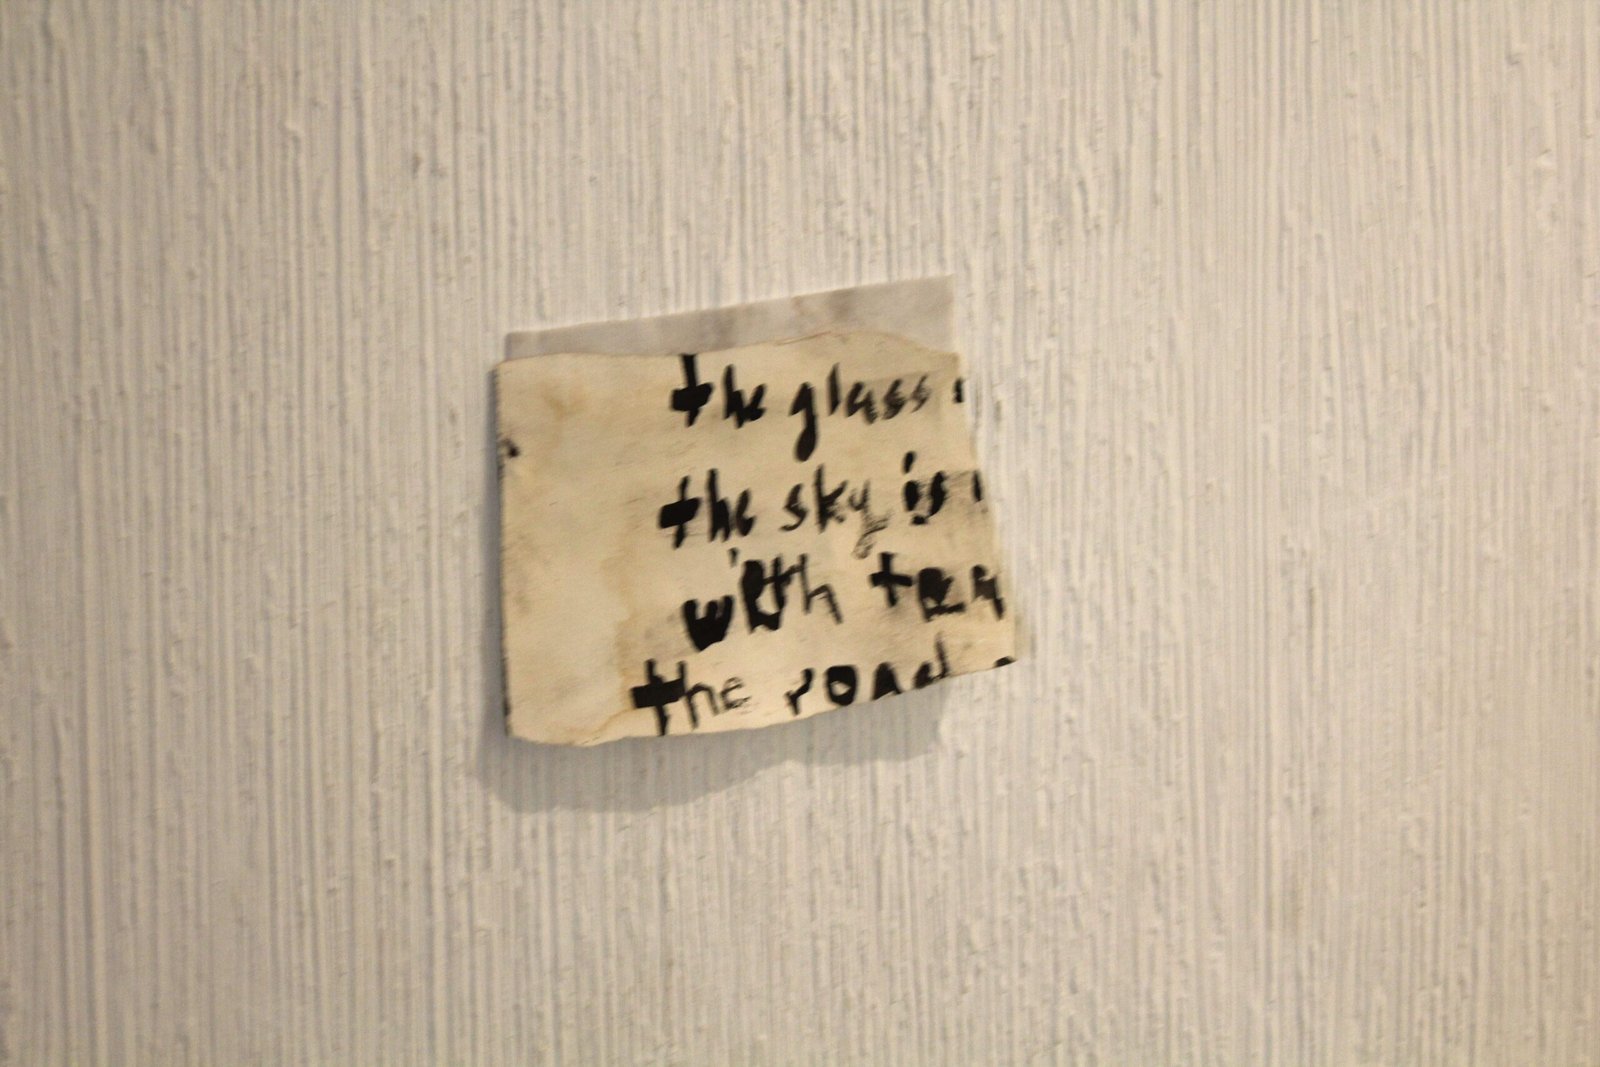 the glass
the sky is
with
the road